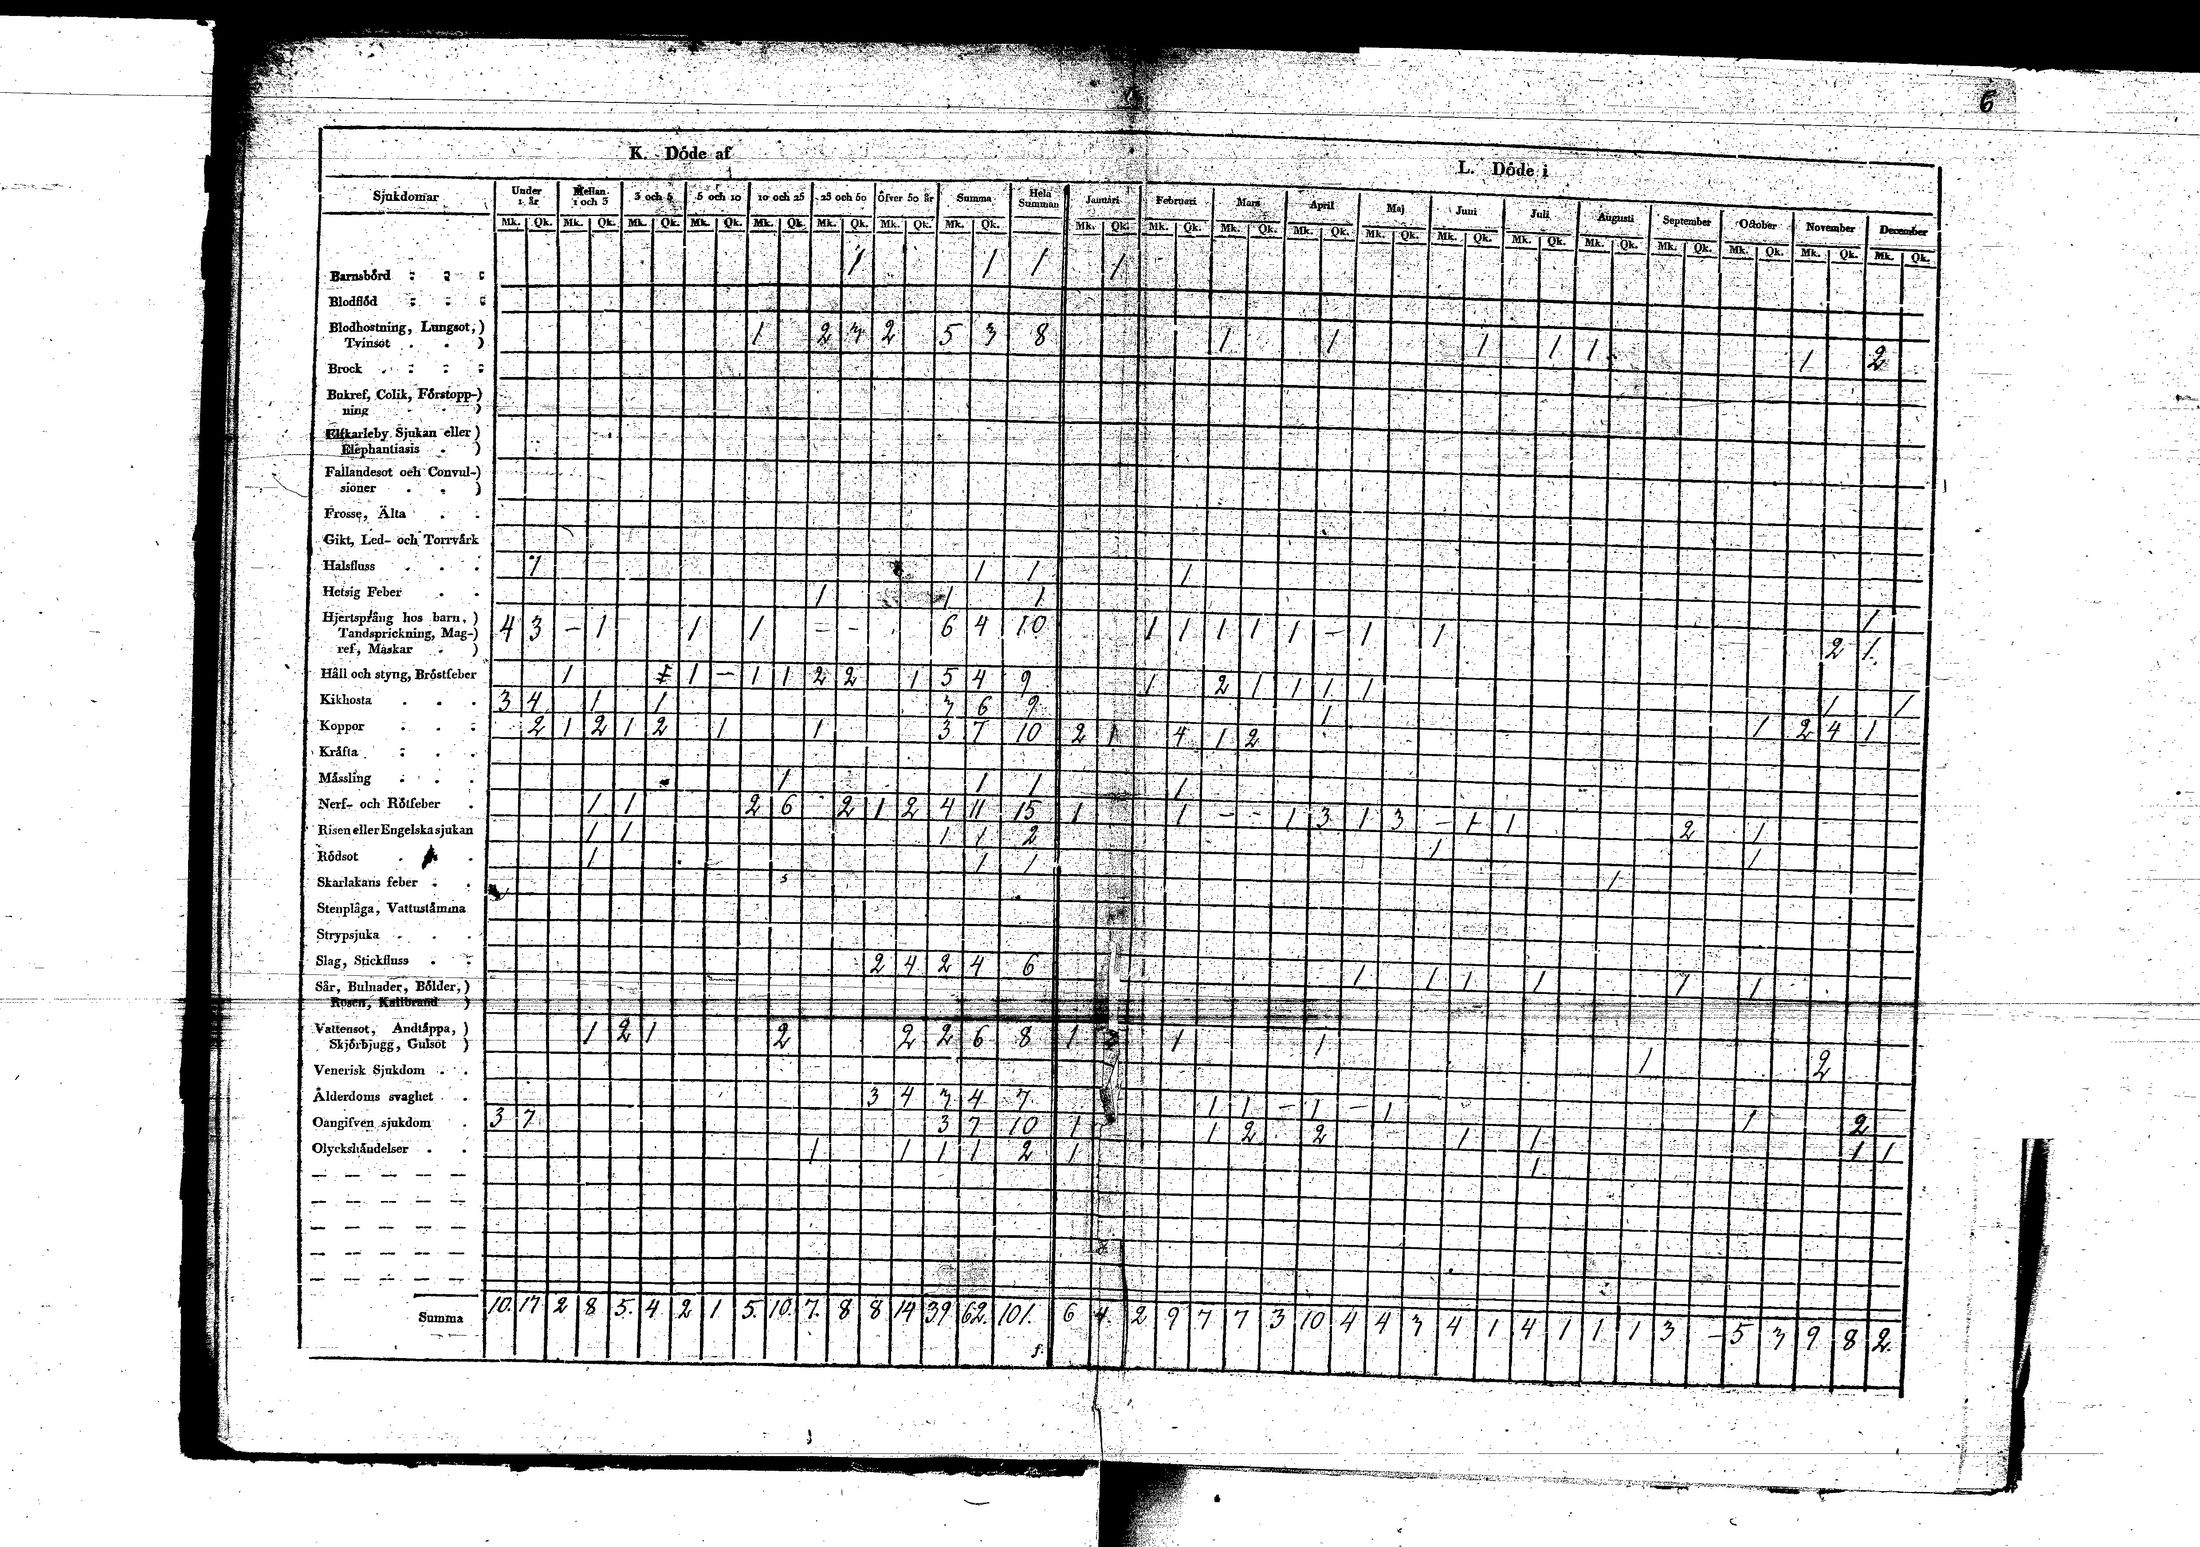 6
K. Döde af
L. Döde i
Sjukdomar Under 1 år Mellan 1 och 3 3 och 5 5 och 10 10 och 25 25 och 50 Öfver 50 år Summa Hela Summan Januari Februari Mars April Maj Juni Juli Augusti September October November December
Mk. Qk. Mk. Qk. Mk. Qk. Mk. Qk. Mk. Qk. Mk. Qk. Mk. Qk. Mk. Qk. Mk. Qk. Mk. Qk. Mk. Qk. Mk. Qk. Mk. Qk. Mk. Qk. Mk. Qk. Mk. Qk. Mk. Qk. Mk. Qk. Mk. Qk. Mk. Qk.
Barnsbörd 1 1 1 1
Blodflöd
Blodhostning, Lungsot,)
Tvinsot . . ) 1 2 3 2 5 3 8 1 1 1 1 1 1 2
Brock
Bukref, Colik, Förstopp-)
ning . . )
Elfkarleby Sjukan eller )
Elephantiasis . )
Fallandesot och Convul-)
sioner . . )
Frosse, Älta
Gikt, Led- och Torrvårk
Halsfluss 1 1 1 1
Hetsig Feber 1 1 1 1
Hjertsprång hos barn, )
Tandsprickning, Mag-) 4 3 – 1 1 1 – – 6 4 10 1 1 1 1 1 – 1 1 2 1.
ref, Maskar . )
Håll och styng, Bröstfeber 1 1 – 1 1 2 2 1 5 4 9 1 2 1 1 1 1 1 1
Kikhosta 3 4 1 1 3 6 9 1
Koppor 2 1 2 1 2 1 1 3 7 10 2 1 4 1 2 1 2 4 1
Kräfta
Mässling 1 1 1 1
Nerf- och Rötfeber 1 1 2 6 2 1 2 4 11 15 1 1 – – 1 3 1 3 – 1 1 2 1
Risen eller Engelska sjukan 1 1 1 1 2 1 1
Rödsot 1 1 1 1
Skarlakans feber
Stenplåga, Vattustämma
Strypsjuka
Slag, Stickfluss 2 4 2 4 6 1 1 1 1 1 1
Sår, Bulnader, Bölder, )
Rosen, Kallbrand )
Vattensot, Andtäppa, )
Skjörbjugg, Gulsot ) 1 2 1 2 2 2 6 8 1 1 1 1 2
Venerisk Sjukdom
Ålderdoms svaghet 3 4 3 4 7 1 1 – 1 – 1 1 2
Oangifven sjukdom 3 7 3 7 10 1 1 2 2 1 1 1 1
Olyckshändelser 1 1 1 1 2 1 1
Summa 10. 17 2 8 5. 4 2 1 5. 10. 7. 8 8 14 39 62. 101. 6 4. 2 9 7 7 3 10 4 4 3 4 1 4 1 1 1 3 – 5 3 9 8 2.